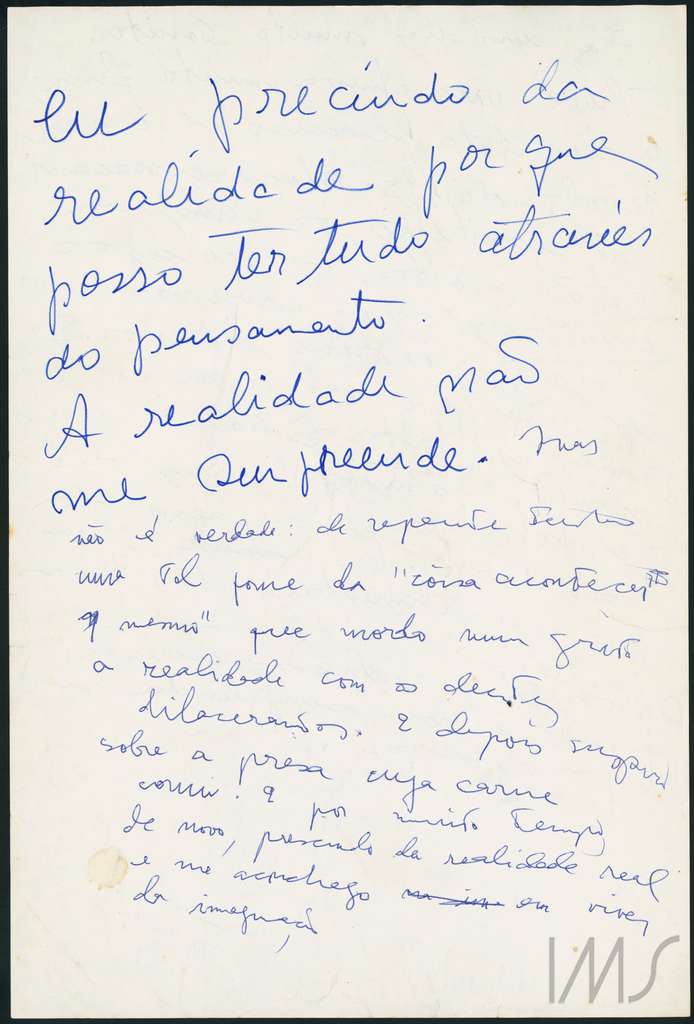 Eu precindo da
realidade porque
posso ter tudo através
do pensamento.
A realidade não
me surpreende. Mas
não é verdade: de repente tenho
uma tal fome da "coisa acontecer
mesmo" que mordo num grito
a realidade com os dentes
dilacerantes. E depois suspiro
sobre a presa cuja carne
comi. E por muito tempo,
de novo, prescindo da realidade real
e me aconchego em viver
da imaginação
IMS